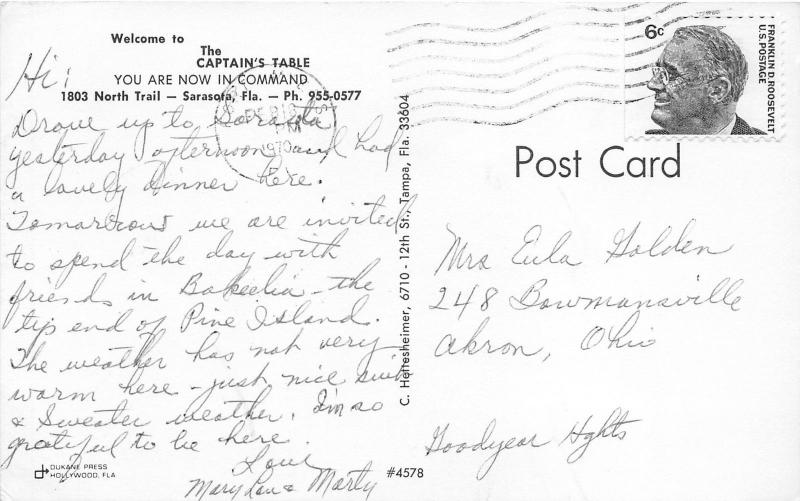 Welcome to
The
CAPTAIN'S TABLE
YOU ARE NOW IN COMMAND
1803 North Trail — Sarasota, Fla. — Ph. 955-0577
Hi:
Drove up to Sarasota
yesterday afternoon and had
a lovely dinner here.
Tomorrow we are invited
to spend the day with
friends in Bokeelia - the
tip end of Pine Island.
The weather has not very
warm here - just nice suit
& Sweater weather. I'm so
grateful to be here.
Love
Mary Lou & Marty
DUKANE PRESS
HOLLYWOOD, FLA
#4578
C. Hertesheimer, 6710 - 12th St., Tampa, Fla. 33604
PM
1970
6c
FRANKLIN D. ROOSEVELT
U.S. POSTAGE
Post Card
Mrs Eula Golden
248 Bowmansville
Akron, Ohio
Goodyear Hghts